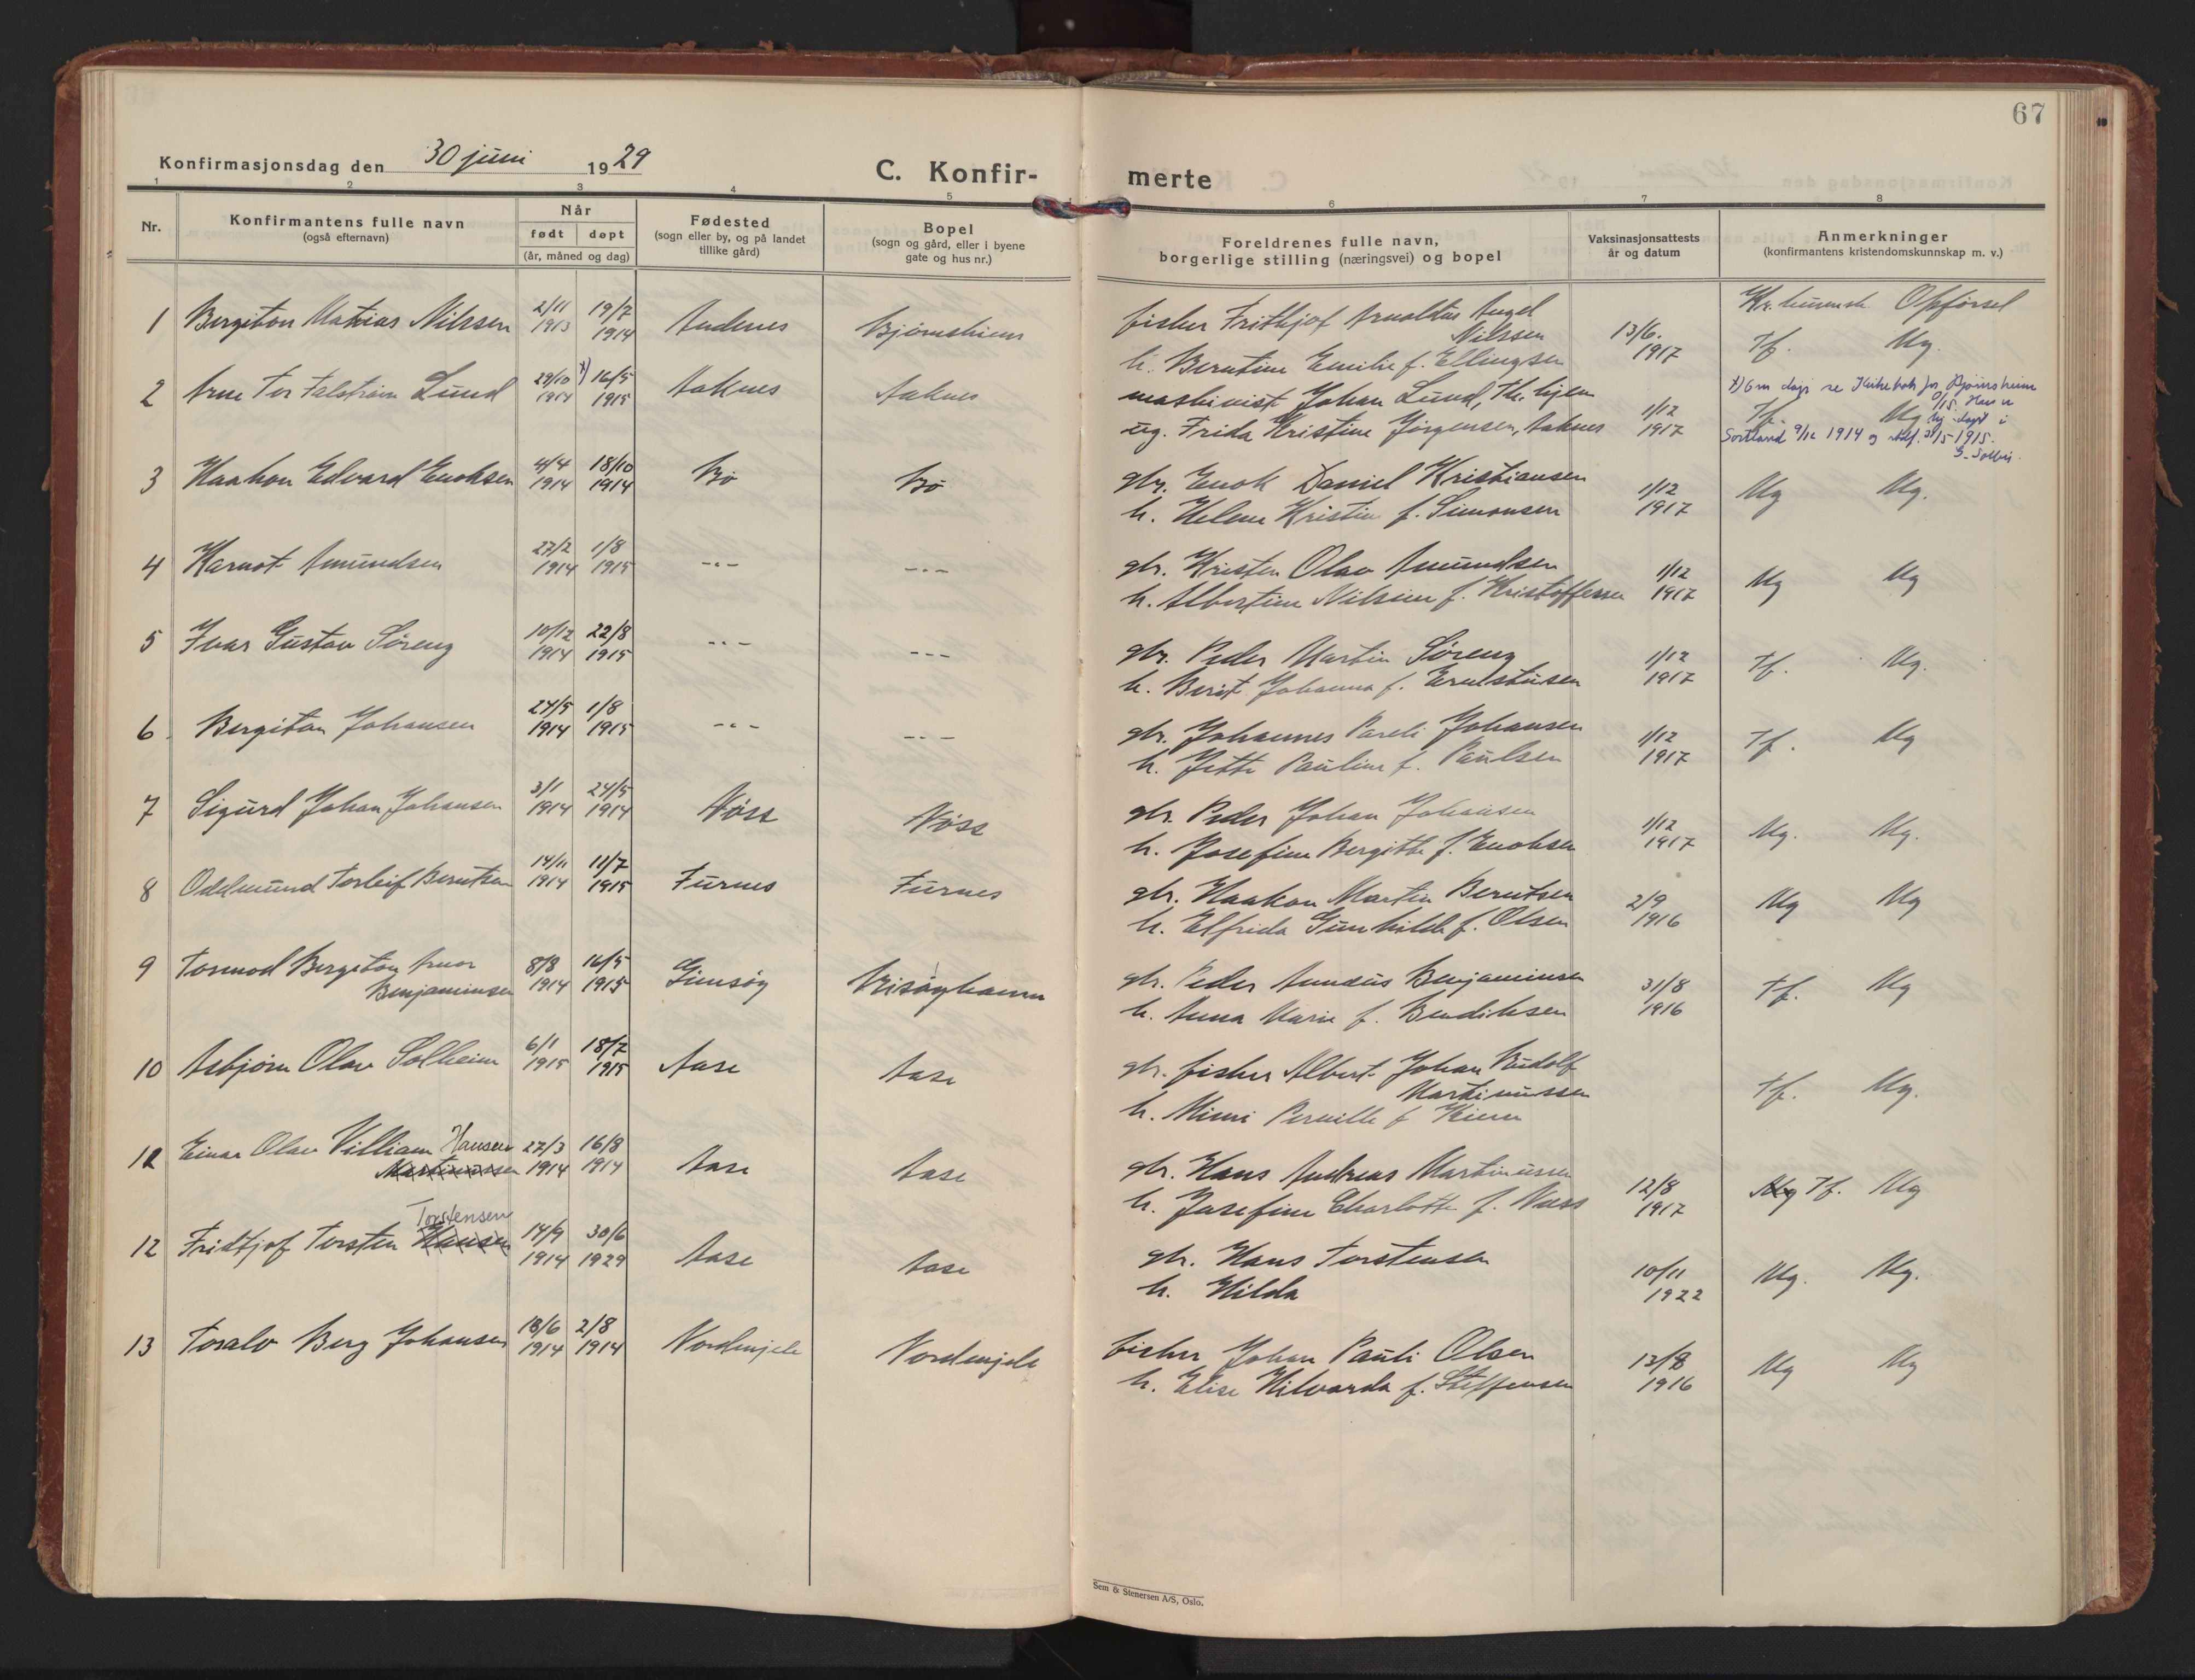 67
Konfirmasjonsdag den 30 juni 1929
C. Konfir- merte
1 2 3 4 5 6 7 8
Nr.
Konfirmantens fulle navn
(også efternavn)
Når
født døpt
(år, måned og dag)
Fødested
(sogn eller by, og på landet
tillike gård)
Bopel
(sogn og gård, eller i byene
gate og hus nr.)
Foreldrenes fulle navn,
borgerlige stilling (næringsvei) og bopel
Vaksinasjonsattests
år og datum
Anmerkninger
(konfirmantens kristendomskunnskap m. v.)
Opførsel
1 Bergiton Matias Nilssen 2/11 1913 19/7 1914 Andenes
fisker Fridthjof Arnoldus Angel
Nilssen
h. Berntine Emilie f. Ellingsen
13/6. 1917 Tf. Mg.
2 Arne Tor Lund 29/10 1914 x) 16/5 1915 Aaknes Aaknes
maskinist Johan Lund,
ug. Frida Kristine Jørgensen, Aaknes
1/12 1917 Tf. Mg
x) Om dåp se Kirkebok for Bjørnskinn
Sortland 1914 1915.
3 Haakon Edvard Enoksen 4/4 1914 18/10 1914 Bø Bø
gbr. Enok Daniel Kristiansen
h. Helene Kristine f. Simonsen
1/12 1917 Mg Mg.
4 Harnot Amundsen 27/2 1914 1/8 1915 -"- -"-
gbr. Kristen Olav Amundsen
h. Albertine Nilsine f. Kristoffersen
1/12 1917 Mg Mg
5 Ivar Gustav Søreng 10/12 1914 22/8 1915 -"- -"-
gbr. Peder Martin Søreng
h. Berit Johanna f. Ernstsen
1/12 1917 Tf. Mg.
6 Bergiton Johansen 24/5 1914 1/8 1915 -"- -"-
gbr. Johannes Pareli Johansen
h. Jette Pauline f. Paulsen
1/12 1917 Tf. Mg
7 Sigurd Johan Johansen 3/1 1914 24/5 1914 Nøss Nøss
gbr. Peder Johan Johansen
h. Josefine Bergitte f. Enoksen
1/12 1917 Mg. Mg.
8 Oddmund Torleif Berntsen 14/11 1914 11/7 1915 Furnes Furnes
gbr. Haakon Martin Berntsen
h. Elfrida Gunhilde f. Olsen
2/9 1916 Mg Mg
9 Tormod Bergiton Arnor
Benjaminsen 8/8 1914 16/5 1915 Gimsøy Risøyhamn
gbr. Peder Amandus Benjaminsen
h. Anna Marie f. Bendiksen
31/8 1916 Tf. Mg
10 Asbjørn Olav Solheim 6/1 1915 18/7 1915 Aase Aase
gbr. fisker Albert Johan Rudolf
Martinussen
h. Mimi Pernille f
Tf. Mg.
11 Einar Olav Villiam Hansen
Martinussen 27/3 1914 16/8 1914 Aase Aase
gbr. Hans Andreas Martinussen
h. Josefine Charlotte f. Næss
12/8 1917 Mg Tf. Mg
Torstensen
12 Fridtjof Torsten Hansen 14/9 1914 30/6 1929 Aase Aase
gbr. Hans Torstensen
h. Hilda
10/11 1922 Mg. Mg.
13 Toralv Berg Johansen 18/6 1914 2/8 1914 Nordmjele Nordmjele
fisker Johan Pauli Olsen
h. Elise Hilvarda f. Steffensen
13/8 1916 Mg Mg
Sem & Stenersen A/S, Oslo.